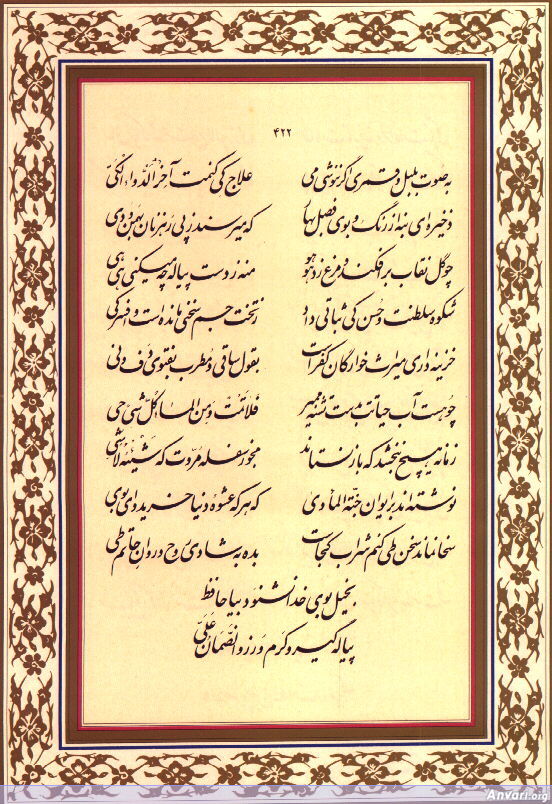 ۴۲۲
به صوت بلبل و قمری اگر ننوشی می علاج کی کنمت آخر الدواء الکی
ذخیره‌ای بنه از رنگ و بوی فصل بهار که می‌رسند ز پی رهزنان بهمن و دی
چو گل نقاب برافکند و مرغ زد هوهو منه ز دست پیاله چه می‌کنی هی هی
شکوه سلطنت و حسن کی ثباتی داد ز تخت جم سخنی مانده است و افسر کی
خزینه‌داری میراث خوارگان کفرست بقول ساقی و مطرب بفتوی دف و نی
چو هست آب حیاتت بدست تشنه ممیر فلا تمت و من الماء کل شیء حی
زمانه هیچ نبخشد که باز نستاند مجو ز سفله مروت که شیئه لا شیء
نوشته‌اند بر ایوان جنة المأوی که هر که عشوه دنیا خرید وای بوی
سخا نماند سخن طی کنم شراب کجاست بده به شادی روح و روان حاتم طی
بخیل بوی خدا نشنود بیا حافظ
پیاله گیر و کرم ورز و الضمان علی
Anvari.org